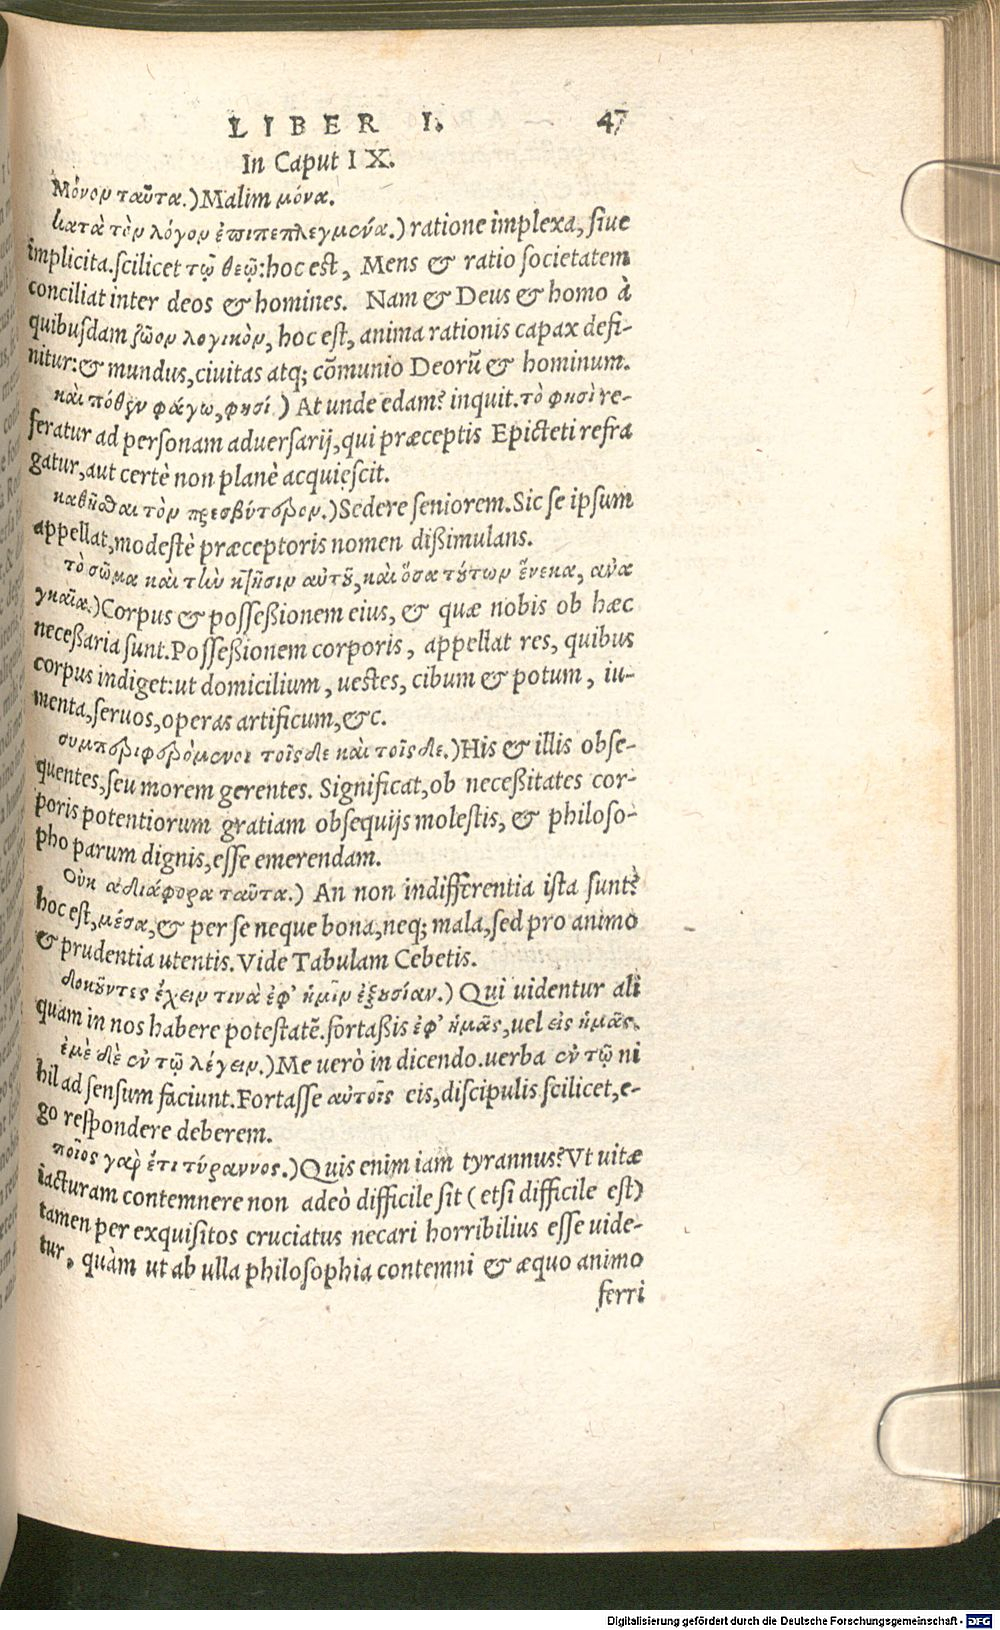 LIBER I. 47
In Caput IX.
Μόνον ταῦτα.) Malim μόνα.
κατὰ τὸν λόγον ἐπιπεπλεγμένα.) ratione implexa, siue
implicita. scilicet τῷ θεῷ: hoc est, Mens & ratio societatem
conciliat inter deos & homines. Nam & Deus & homo à
quibusdam ζῶον λογικὸν, hoc est, anima rationis capax defi-
nitur: & mundus, ciuitas atq; cõmunio Deorũ & hominum.
καὶ πόθεν φάγω, φησί.) At unde edam? inquit. τὸ φησὶ re-
feratur ad personam aduersarij, qui præceptis Epicteti refra
gatur, aut certè non planè acquiescit.
καθῆσθαι τὸν πρεσβύτερον.) Sedere seniorem. Sic se ipsum
appellat, modestè præceptoris nomen dißimulans.
τὸ σῶμα καὶ τὴν κτῆσιν αὐτοῦ, καὶ ὅσα τούτων ἕνεκα, ἀνα
γκαῖα.) Corpus & posseßionem eius, & quæ nobis ob hæc
neceßaria sunt. Posseßionem corporis, appellat res, quibus
corpus indiget: ut domicilium, uestes, cibum & potum, iu-
menta, seruos, operas artificum, &c.
συμπεριφερόμενοι τοῖσδε καὶ τοῖσδε.) His & illis obse-
quentes, seu morem gerentes. Significat, ob neceßitates cor-
poris potentiorum gratiam obsequijs molestis, & philoso-
pho parum dignis, esse emerendam.
Οὐκ ἀδιάφορα ταῦτα.) An non indifferentia ista sunt?
hoc est, μέσα, & per se neque bona, neq; mala, sed pro animo
& prudentia utentis. Vide Tabulam Cebetis.
δοκοῦντες ἔχειν τινὰ ἐφ' ἡμῖν ἐξουσίαν.) Qui uidentur ali
quam in nos habere potestatẽ. fortaßis ἐφ' ἡμᾶς, uel εἰς ἡμᾶς.
ἐμὲ δὲ ἐν τῷ λέγειν.) Me uerò in dicendo. uerba ἐν τῷ ni
hil ad sensum faciunt. Fortasse αὐτοῖς eis, discipulis scilicet, e-
go respondere deberem.
ποῖος γὰρ ἔτι τύραννος.) Quis enim iam tyrannus? Vt uitæ
iacturam contemnere non adeò difficile sit (etsi difficile est)
tamen per exquisitos cruciatus necari horribilius esse uide-
tur, quàm ut ab ulla philosophia contemni & æquo animo
ferri
Digitalisierung gefördert durch die Deutsche Forschungsgemeinschaft - DFG